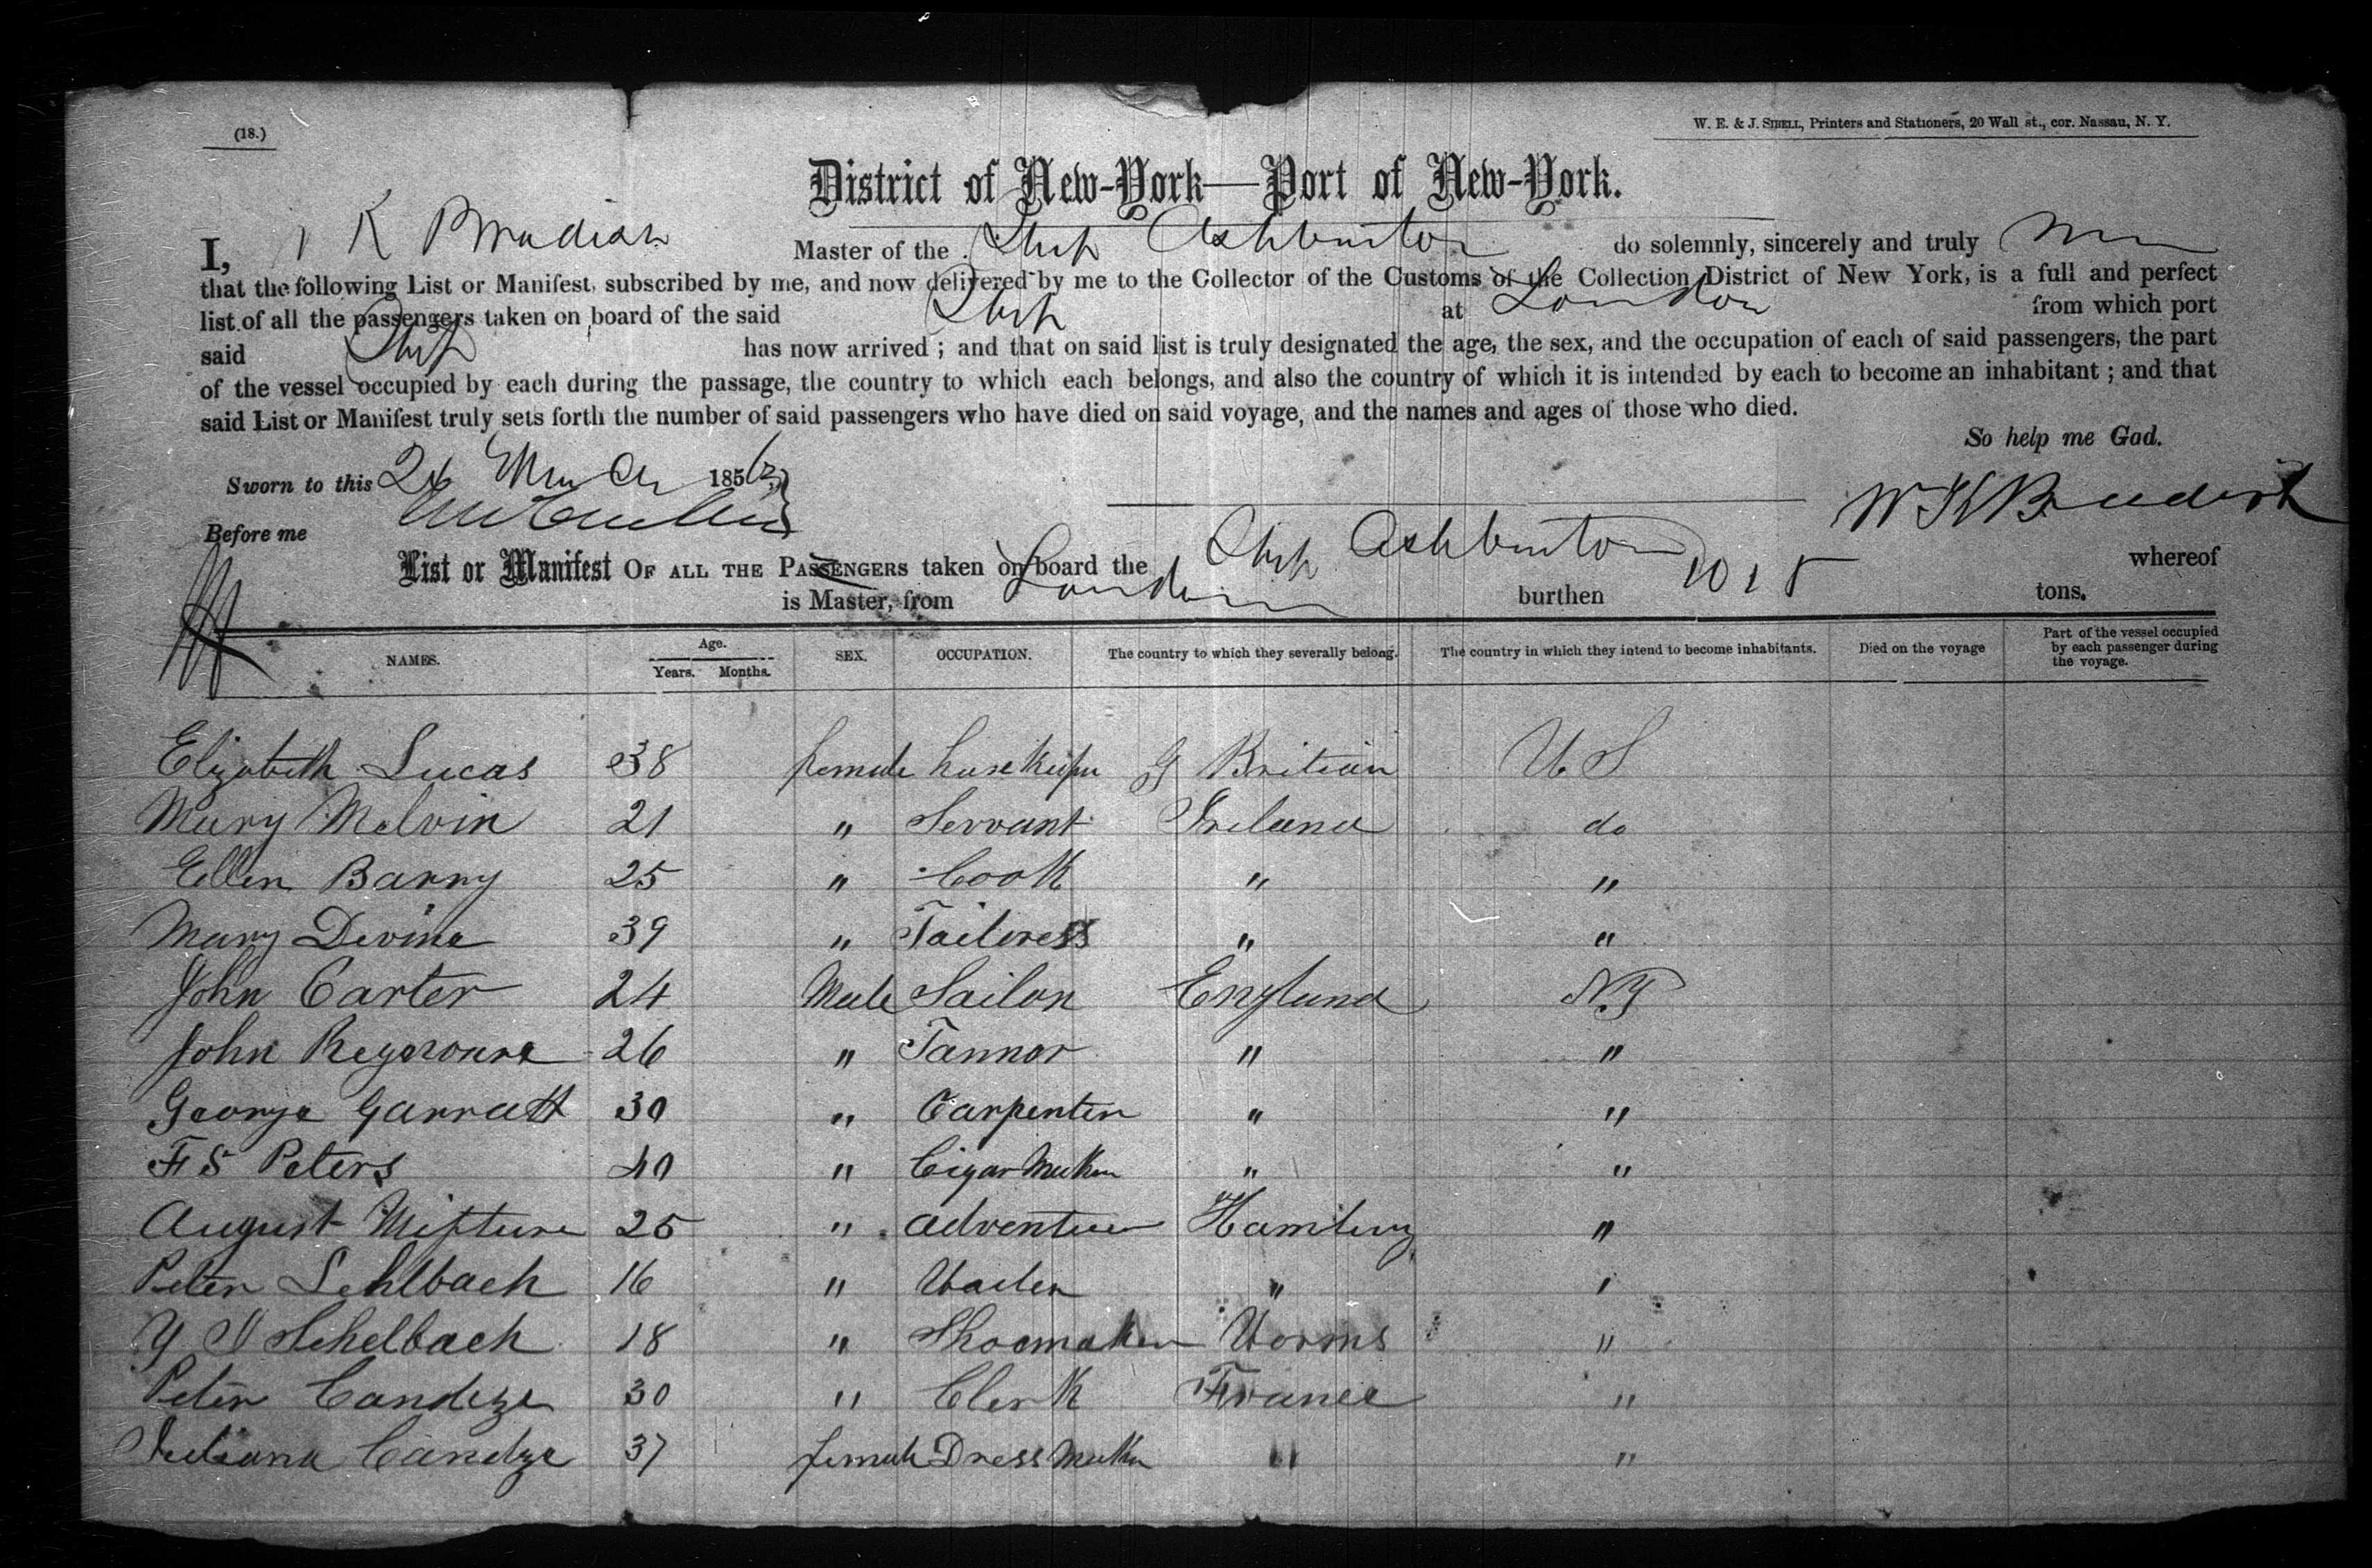 (18.)
W. E. & J. SIBELL, Printers and Stationers, 20 Wall st., cor. Nassau, N. Y.
District of New-York—Port of New-York.
I, K Bradish Master of the Ship Ashburton do solemnly, sincerely and truly
that the following List or Manifest, subscribed by me, and now delivered by me to the Collector of the Customs of the Collection District of New York, is a full and perfect
list of all the passengers taken on board of the said Ship at London from which port
said Ship has now arrived ; and that on said list is truly designated the age, the sex, and the occupation of each of said passengers, the part
of the vessel occupied by each during the passage, the country to which each belongs, and also the country of which it is intended by each to become an inhabitant ; and that
said List or Manifest truly sets forth the number of said passengers who have died on said voyage, and the names and ages of those who died.
So help me Gad.
Sworn to this 185
W K Bradish
Before me
List or Manifest OF ALL THE PASSENGERS taken on board the Ship Ashburton whereof
is Master, from London burthen 1015 tons.
NAMES. Age. Years. Months. SEX. OCCUPATION. The country to which they severally belong. The country in which they intend to become inhabitants. Died on the voyage Part of the vessel occupied by each passenger during the voyage.
Elizabeth Lucas 38 female G Britian U S
Mary Melvin 21 " Servant Ireland do
Ellen Barry 25 " Cook " "
Mary Devine 39 " Tailoress " "
John Carter 24 Male Sailor England NY
John 26 " Tanner " "
George Garratt 30 " Carpenter " "
F S Peters 40 " Cigar Maker " "
August 25 " Hamburg "
Peter Sehlbach 16 " " "
Sehelbach 18 " Shoemaker Worms "
Peter Candeze 30 " Clerk France "
Juliana Candze 37 female Dress Maker " "